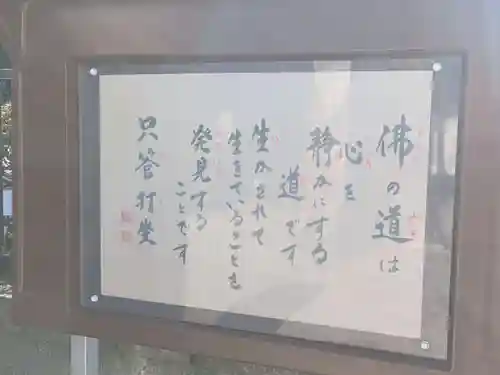 佛の道は
心を
静かにする
道です
生かされて
生きていることを
発見する
ことです
只管打坐